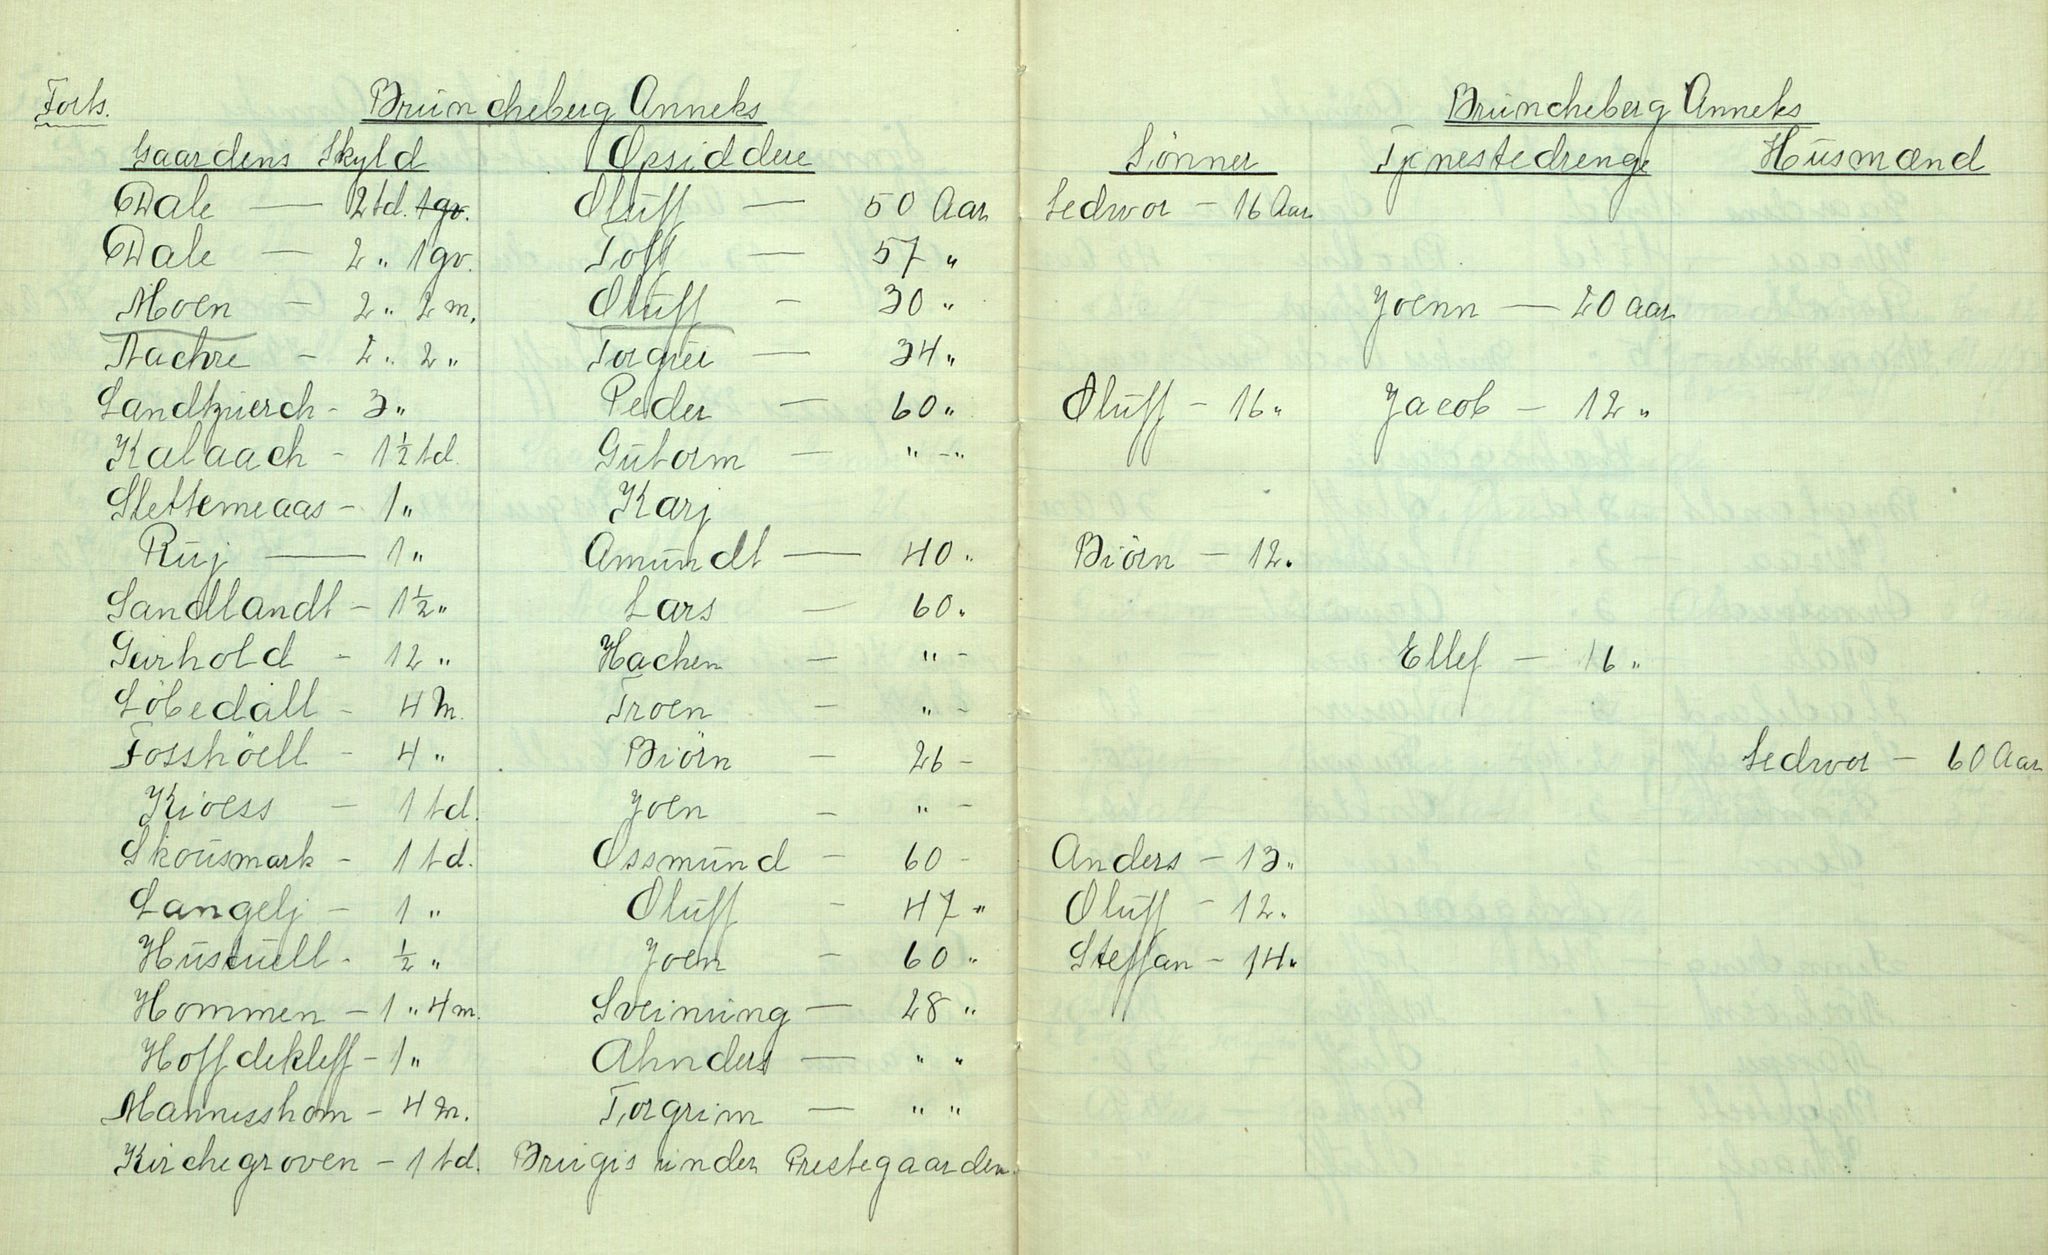 Forts. Brüncheberg Anneks Brüncheberg Anneks
Gaardens Skyld Opsiddere Sönner Tjenestedrenge Hüsmænd
Dale — 2 td. 1 gv. Olüff — 50 Aar Sedwor — 16 Aar
Dale — 2 „ 1 gv. Toff — 57 „
Moen — 2 „ 2 m. Olüff — 30 „ Joenn — 20 Aar
Aachre — 2 „ 2 „ Torgrei — 34 „
Landtzuerch — 3 „ Peder — 60 „ Olüff — 16 „ Jacob — 12 „
Kalaach — 1½ td. Gütorm — „ — „
Slettemeaas — 1 „ Karj
Rüj — 1 „ Amündt — 40 „ Biörn — 12 „
Sandlandt — 1½ „ Lars — 60 „
Geirhold — 12 „ Hachen — „ — Ellef — 16 „
Löbedall — 4 m. Troen — „ —
Fosshöell — 4 „ Biörn — 26 — Sedwor — 60 Aar
Kioess — 1 td. Joen — „ —
Skousmark — 1 td. Ossmünd — 60 — Anders — 13 „
Langelj — 1 „ Olüff — 47 „ Olüff — 12 „
Hüstüell — ½ „ Joen — 60 „ Steffan — 14 „
Hommen — 1 „ 4 m. Sveinüng — 28 „
Hoffdekleff — 1 „ Ahnders — „ „
Mannesshom — 4 m. Torgrim — „ „
Kirchegroven — 1 td. Brügis ünder Prestegaarden.